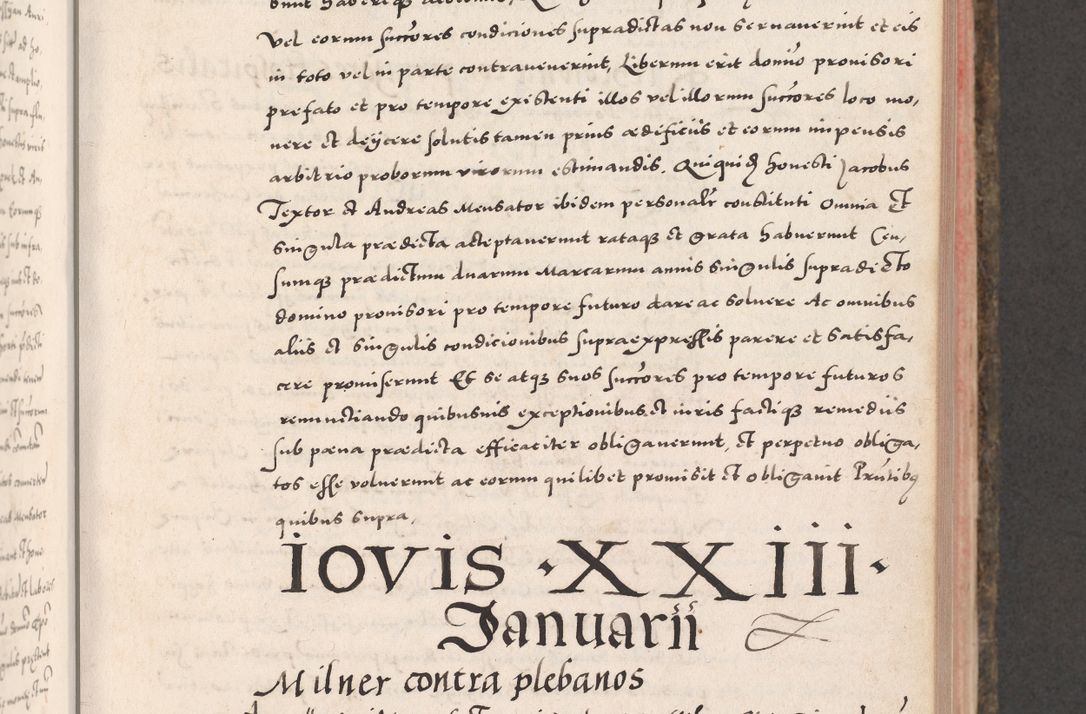 vel eorum succores condiciones supradictas non servaverint et eis
in toto vel in parte contravenerint, Liberum erit domino provisori
prefato et pro tempore existenti illos vel illorum succores loco mo,
vere et deijcere solutis tamen prius ædeficiis et eorum impensis
arbitrio proborum virorum estimandis. Qui quid honesti Jacobus
Textor et Andreas Mensator ibidem personalr constituti Omnia Et
singula prædicta acceptaverunt rataq et grata habuerunt Cen,
sumq prædictum duarum Marcarum annis singulis supradicto
domino provisori pro tempore futuro dare ac solvere Ac omnibus
aliis et singulis condicionibus supraexpressis parere et satisfa,
cere promiserunt Et se atq suos succores pro tempore futuros
renunctiando quibusvis exceptionibus et iuris factiq remediis
sub pæna prædicta efficaciter obligaverunt, et perpetuo obliga,
tos esse voluerunt ac eorum quilibet promisit et obligavit Prntibq
quibus supra,
IOVIS · XXIII ·
Januarii
Milner contra plebanos